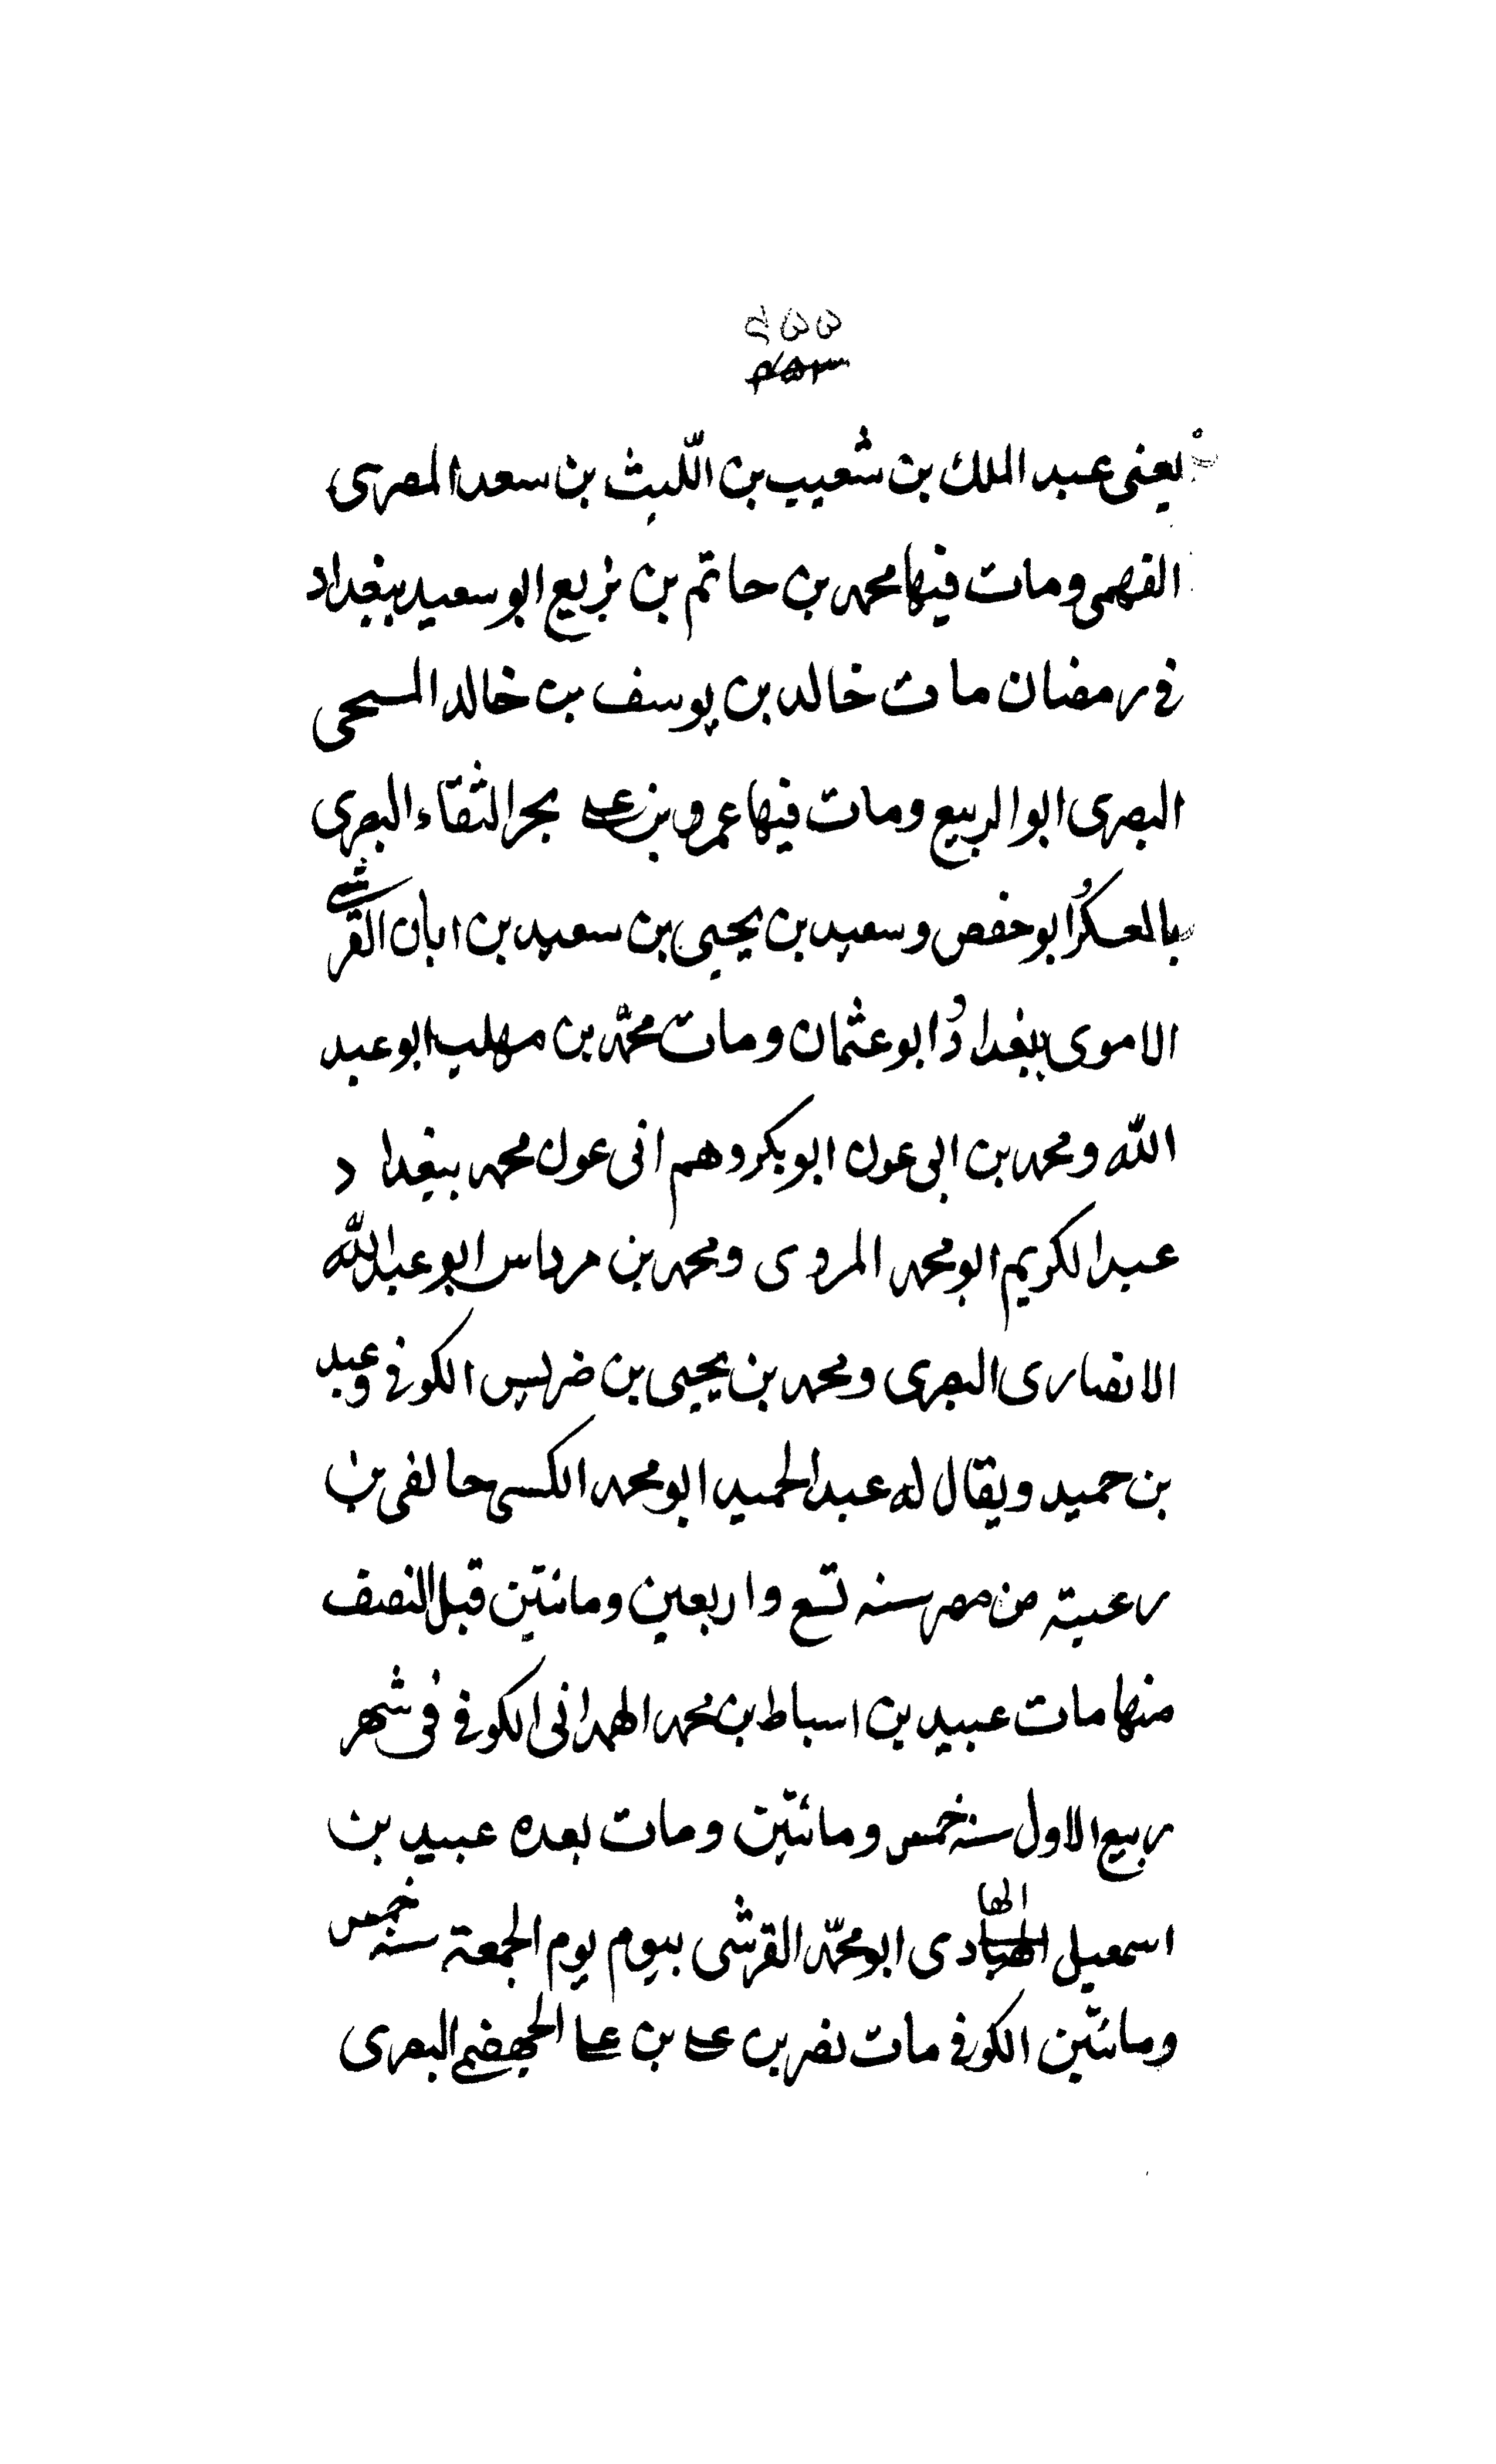 ٤٥٥
٣٥٨
يعنى عبد الملك بن شعيب بن اللّيث بن سعد المصرى
الفهمى ومات فيها محمد بن حاتم بن بزيع ابو سعيد ببغداد
فى رمضان مات خالد بن يوسف بن خالد السمحى
البصرى ابو الربيع ومات فيها عمرو بن على بحر الثقاء البصرى
بالعسكر ابو حفص وسعيد بن يحيى بن سعيد بن ابان القرشى
الاموى ببغداد ابو عثمان ومات محمّد بن مهلب ابو عبد
الله ومحمد بن ابى عون ابو بكر وهم انى عون محمد ببغداد
عبد الكريم ابو محمد المروى ومحمد بن مرداس ابو عبد الله
الانصارى البصرى ومحمد بن يحيى بن ضريس الكوفى وعبد
بن حميد ويقال له عبد الحميد ابو محمد الكسى حا لفى بن
رعيته من مصر سنه تسع واربعين ومائتين قبل النصف
منها مات عبيد بن اسباط بن محمد الهمدانى الكوفى فى شهر
ربيع الاول سنه خمس ومائتين ومات بعده عبيد بن
اسمعيل الهبادى الها ابو محمّد القرشى بيوم يوم الجمعة سنه خمس
ومائتين الكوفى مات نصر بن على بن على الجهضمى البصرى